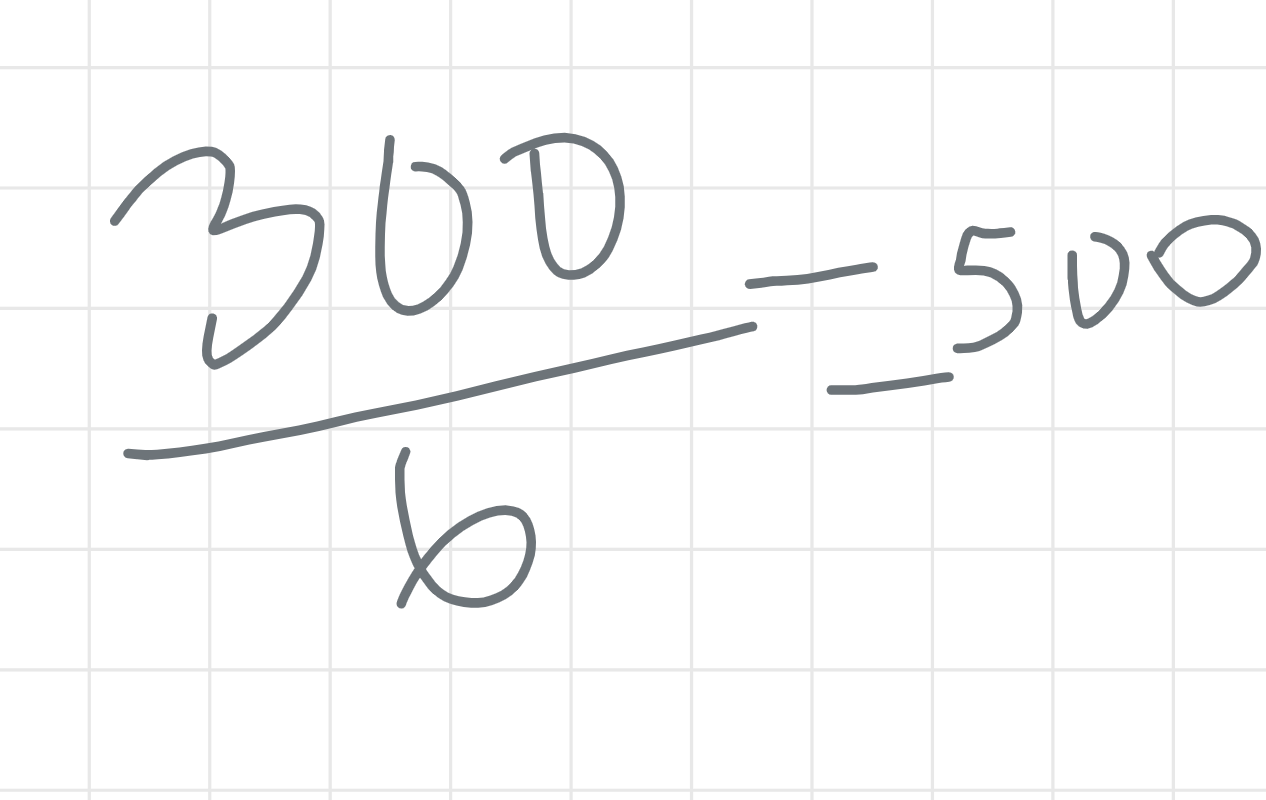 300
/6 = 500